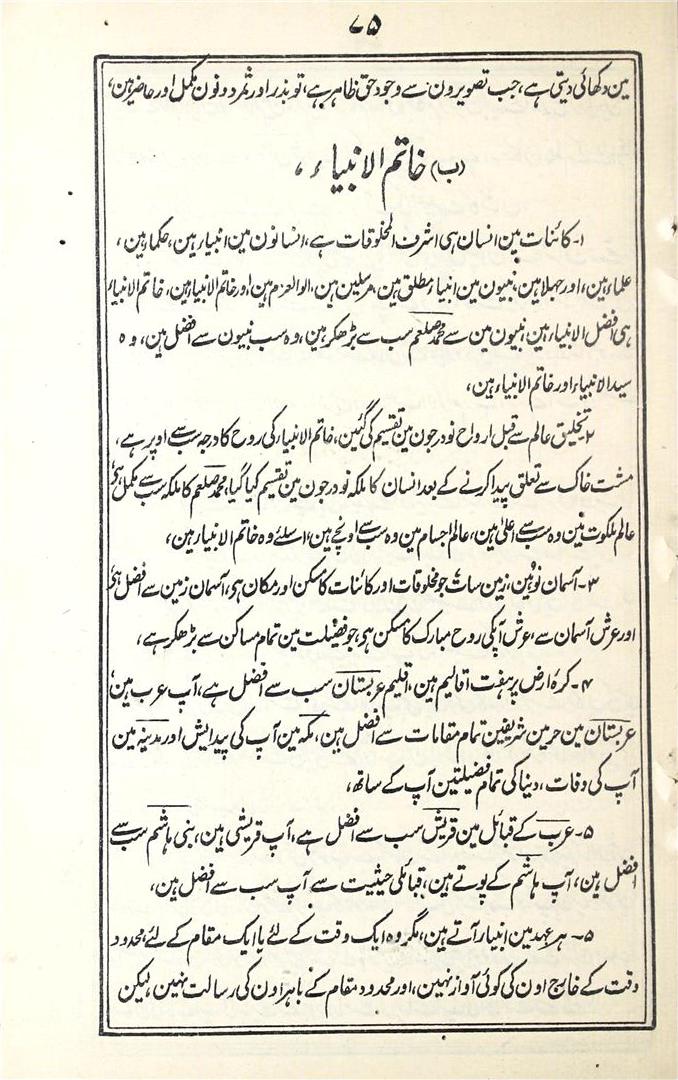 ۷۵
مین دکھائی دیتی ہے، جب تصویرون سے وجود حق ظاہر ہے، تو بذر اور ثمر دونون مکمل اور حاضر ہین،
(ب) خاتم الانبیاء،
۱- کائنات مین انسان ہی اشرف المخلوقات ہے، انسانون مین انبیاء ہین، حکما ہین،
علما ہین، اور جہلا ہین، نبیون مین انبیاء مطلق ہین، مرسلین ہین، الوالعزم ہین اور خاتم الانبیاء ہین، خاتم الانبیاء
ہی افضل الانبیاء ہین، نبیون مین سے محمد صلعم سب سے بڑھکر ہین، وہ سب نبیون سے افضل ہین، وہ
سید الانبیاء اور خاتم الانبیاء ہین،
۲ تخلیق عالم سے قبل ارواح نو درجون مین تقسیم کی گئین، خاتم الانبیاء کی روح کا درجہ سب سے اوپر ہے،
مشت خاک سے تعلق پیدا کرنے کے بعد انسان کا ملکہ نو درجون مین تقسیم کیا گیا، محمد صلعم کا ملکہ سب سے مکمل ہی،
عالم ملکوت مین وہ سب سے اعلیٰ ہین، عالم اجسام مین وہ سب سے اونچے ہین، اسلئے وہ خاتم الانبیاء ہین،
۳- آسمان نو ہین، زمین سات جو مخلوقات اور کائنات کا مسکن اور مکان ہی، آسمان زمین سے افضل ہی،
اور عرش آسمان سے، عرش آپکی روح مبارک کا مسکن ہی، جو فضیلت مین تمام مساکن سے بڑھکر ہے،
۴- کرہ ارض پر ہفت اقالیم ہین، اقلیم عربستان سب سے افضل ہے، آپ عرب ہین،
عربستان مین حرمین شریفین تمام مقامات سے افضل ہین، مکہ مین آپ کی پیدایش اور مدینہ مین
آپ کی وفات، دینا کی تمام فضیلتین آپ کے ساتھ،
۵- عرب کے قبائل مین قریش سب سے افضل ہے، آپ قریشی ہین، بنی ہاشم سب سے
افضل ہین، آپ ہاشم کے پوتے ہین، قبائلی حیثیت سے آپ سب سے افضل ہین،
۵- ہر عہد مین انبیاء آتے ہین، مگر وہ ایک وقت کے لئے یا ایک مقام کے لئے، محدود
وقت کے خارج اون کی کوئی آواز نہین، اور محدود مقام کے باہر اون کی رسالت نہین، لیکن